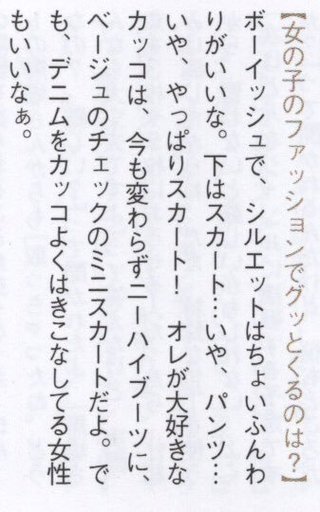 【女の子のファッションでグッとくるのは？】
ボーイッシュで、シルエットはちょいふんわ
りがいいな。下はスカート…いや、パンツ…
いや、やっぱりスカート！　オレが大好きな
カッコは、今も変わらずニーハイブーツに、
ベージュのチェックのミニスカートだよ。で
も、デニムをカッコよくはきこなしてる女性
もいいなぁ。